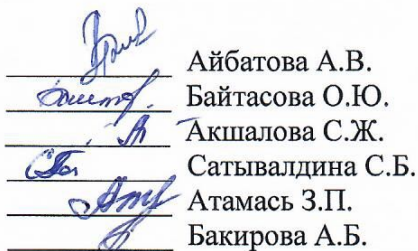 Айбатова А.В.
Байтасова О.Ю.
Акшалова С.Ж.
Сатывалдина С.Б.
Атамась З.П.
Бакирова А.Б.